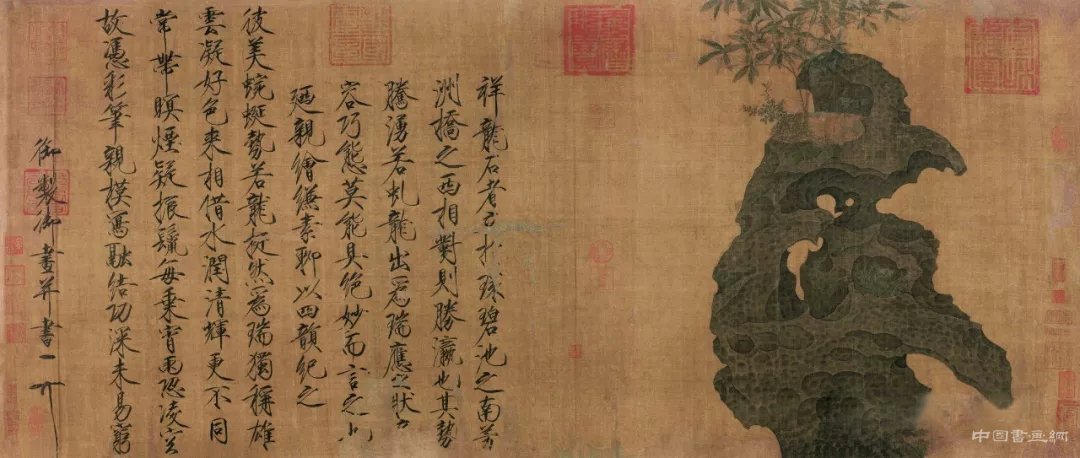 祥龍石者立於環碧池之南芳
洲橋之西相對則勝瀛也其勢
騰湧若虬龍出為瑞應之狀奇
容巧態莫能具絕妙而言之也
廼親繪縑素聊以四韻紀之
彼美蜿蜒勢若龍挺然為瑞獨稱雄
雲凝好色來相借水潤清輝更不同
常帶暝煙疑振鬣每乘宵雨恐凌空
故憑彩筆親模寫融結功深未易窮
御製御畫并書
中国書画網